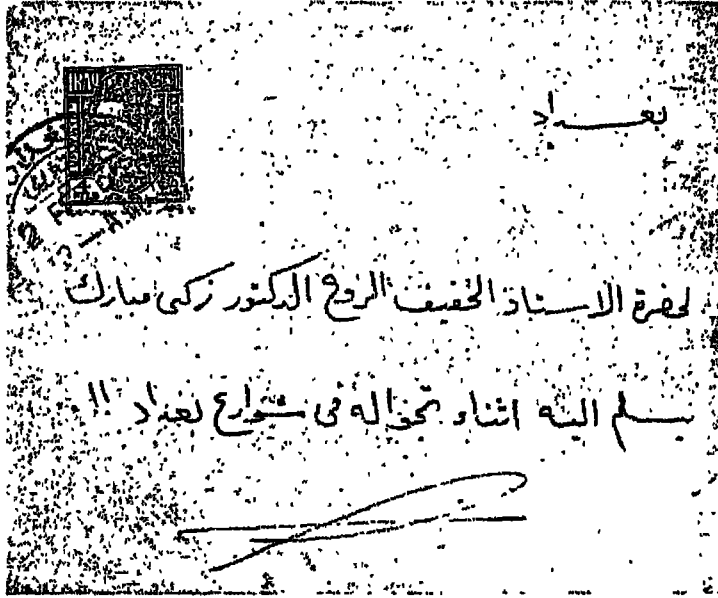 بغداد
لحضرة الاستاذ الخفيف الروح الدكتور زكى مبارك
يسلم اليه اثناء تجواله فى شوارع بغداد !!